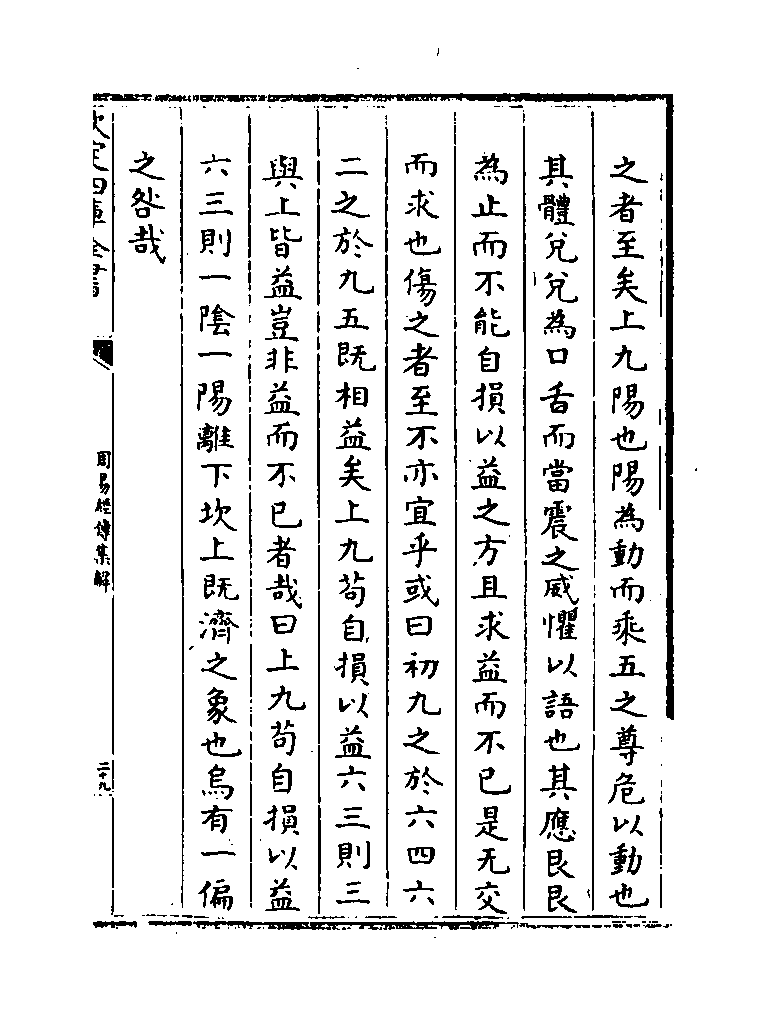 之者至矣上九陽也陽為動而乘五之尊危以動也
其體兌兌為口舌而當震之威懼以語也其應艮艮
為止而不能自損以益之方且求益而不已是无交
而求也傷之者至不亦宜乎或曰初九之於六四六
二之於九五既相益矣上九苟自損以益六三則三
與上皆益豈非益而不已者哉曰上九苟自損以益
六三則一陰一陽離下坎上既濟之象也烏有一偏
之咎哉
欽定四庫全書
周易經傳集解
二十九